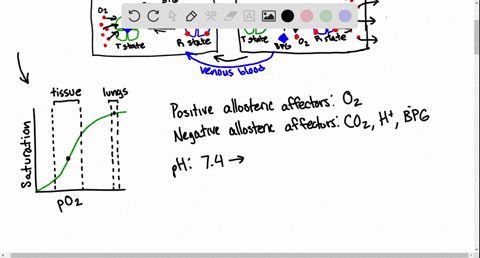 O₂
T state
R state
T state
BPG
O₂
R state
venous blood
tissue lungs
Saturation
pO₂
Positive allosteric affectors: O₂
Negative allosteric affectors: CO₂, H⁺, BPG
pH: 7.4 →